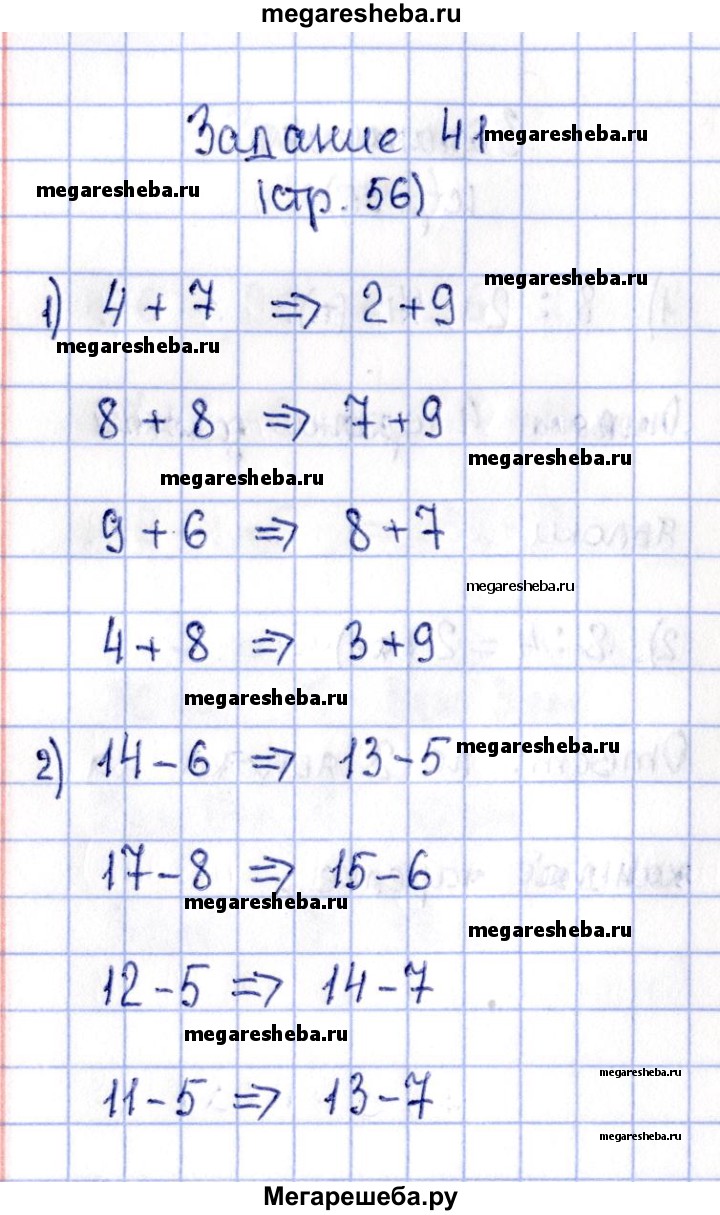 megaresheba.ru
Задание 41 megaresheba.ru
megaresheba.ru
(стр. 56)
megaresheba.ru
1) 4 + 7 ⇒ 2 + 9
megaresheba.ru
8 + 8 ⇒ 7 + 9
megaresheba.ru
megaresheba.ru
9 + 6 ⇒ 8 + 7
megaresheba.ru
4 + 8 ⇒ 3 + 9
megaresheba.ru
2) 14 - 6 ⇒ 13 - 5 megaresheba.ru
17 - 8 ⇒ 15 - 6
megaresheba.ru
megaresheba.ru
12 - 5 ⇒ 14 - 7
megaresheba.ru
megaresheba.ru
11 - 5 ⇒ 13 - 7
megaresheba.ru
Мегарешеба.ру